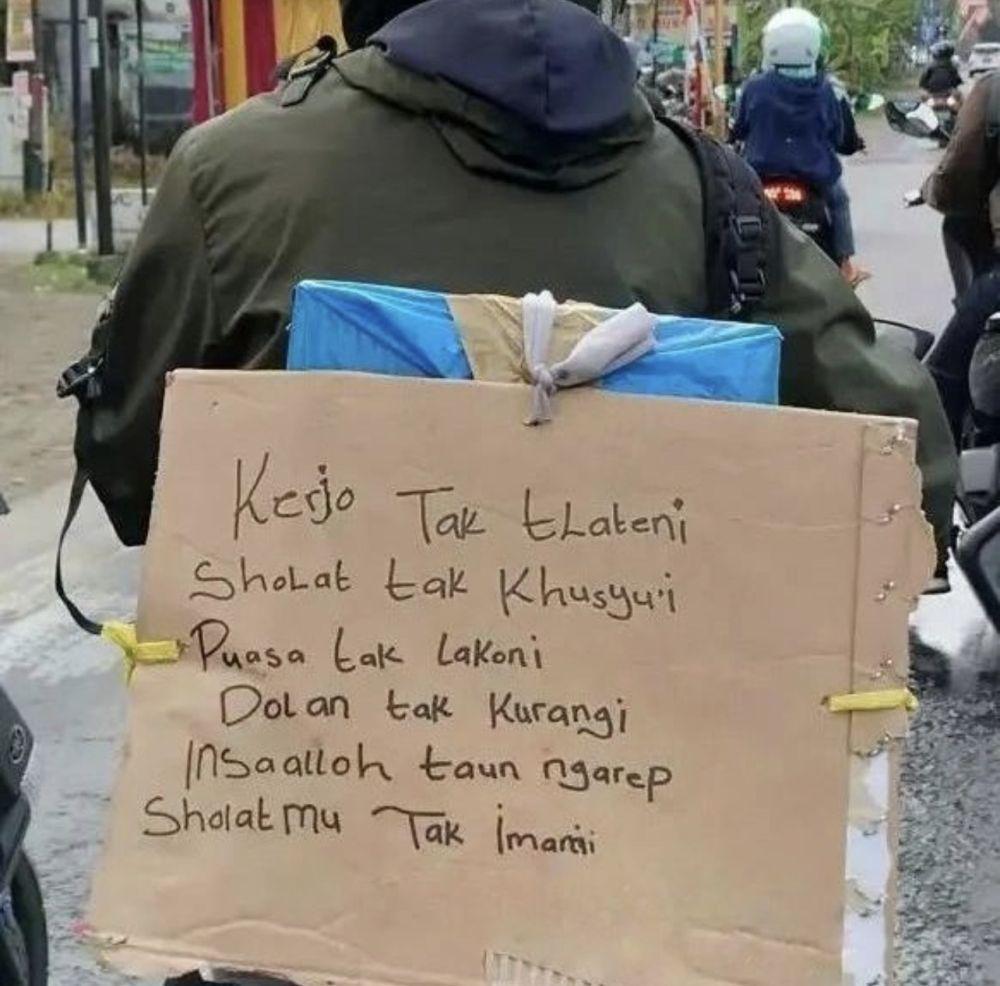 Kerjo Tak tLateni
ShoLat tak Khusyu'i
Puasa tak Lakoni
DoLan tak Kurangi
Insaalloh taun ngarep
Sholatmu Tak imami